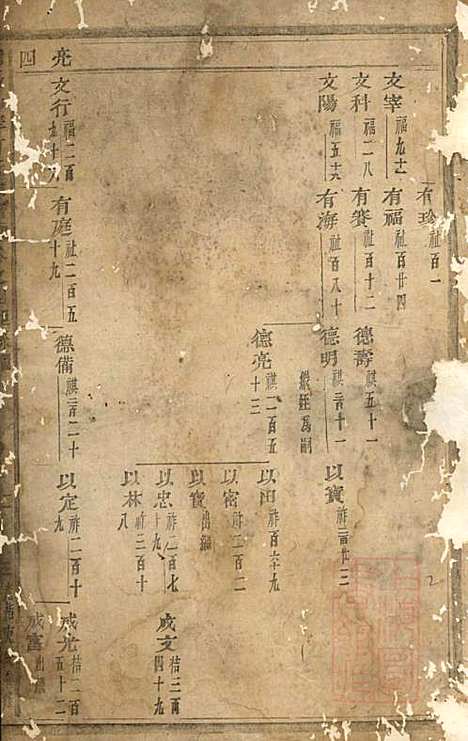 有珍 祉百一
文宰 福九十一
有福 祉百廿四
文科 福二八
有養 祉百十二
德壽 祺五十一
文陽 福五十六
有海 祉百八十
德明 祺二百十一
繼鈺為嗣
以寶 祚二百廿三
德亮 祺二百五十三
以田 祚百六十九
以密 祚二百二
以寶 出繼
以忠 祚二百七十九
成文 祜三百四十九
以林 祚三百十八
亮
文行 福二百九十八
有庭 祉二百五十九
德備 祺二百二十
以定 祚二百十九
成光 祜二百五十二
成富 出繼
四